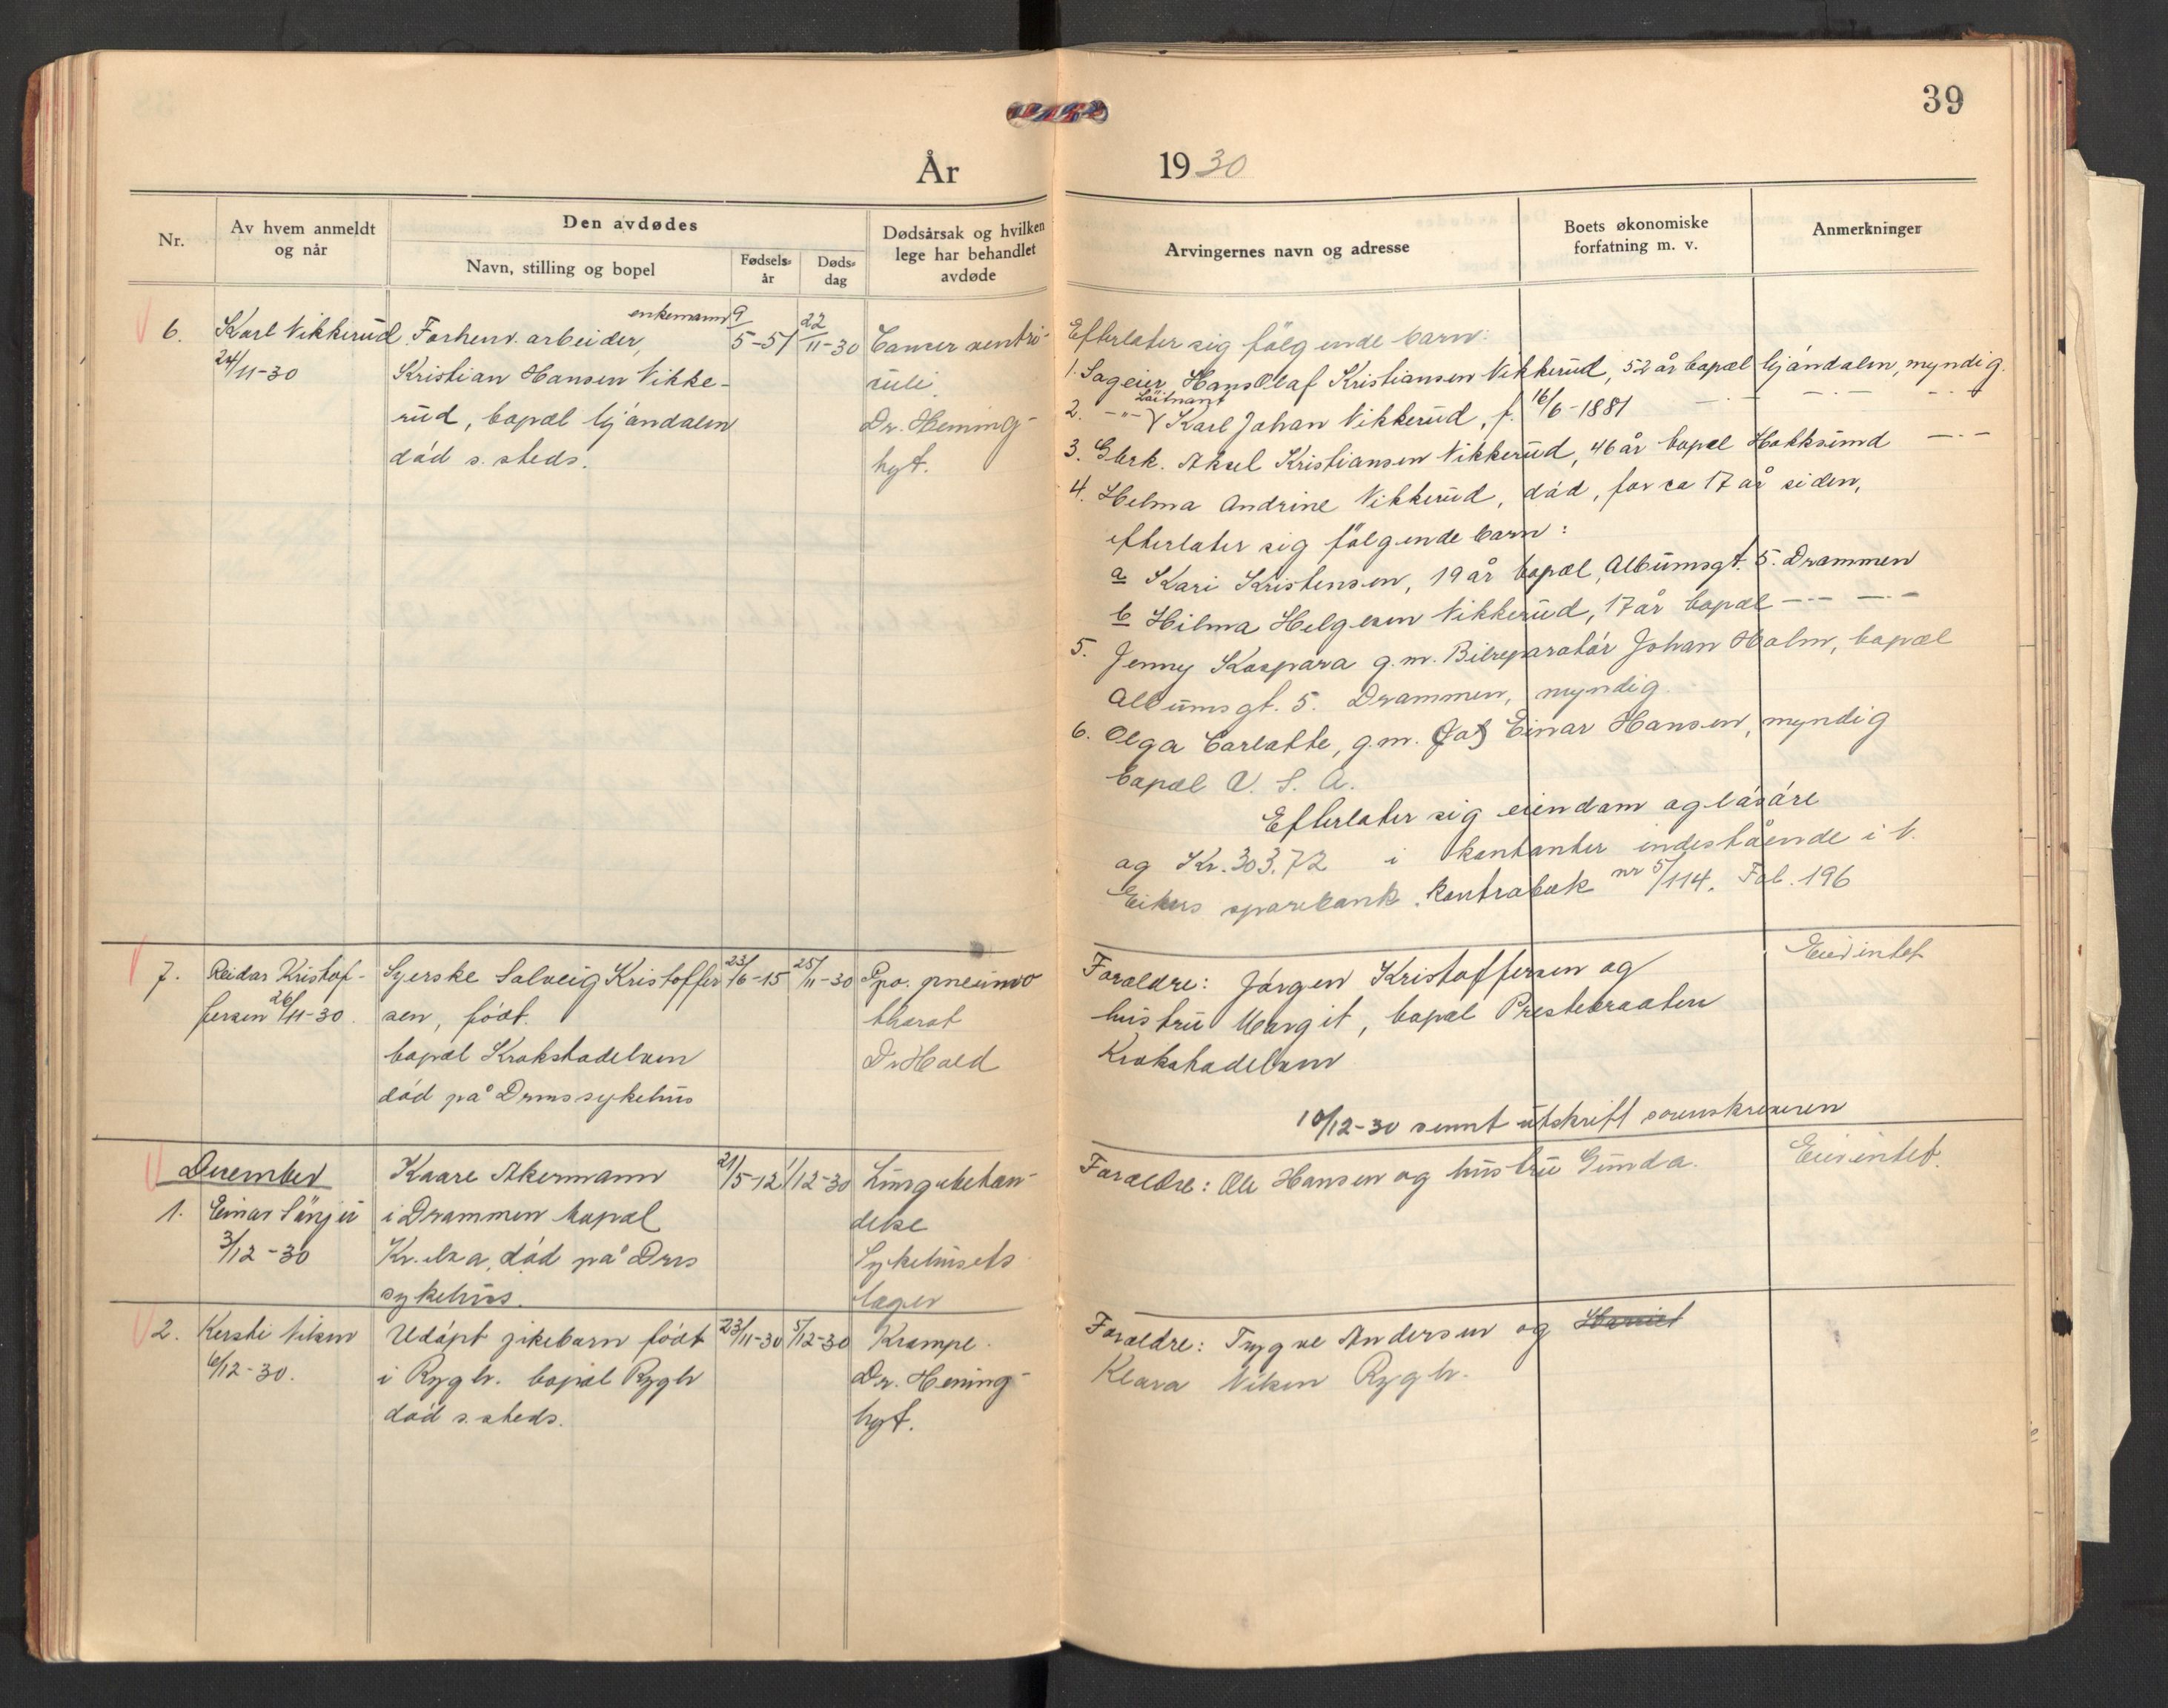 39
År 1930
Nr.
Av hvem anmeldt
og når
Den avdødes
Navn, stilling og bopel
Fødsels-
år
Døds-
dag
Dødsårsak og hvilken
lege har behandlet
avdøde
Arvingernes navn og adresse
Boets økonomiske
forfatning m. v.
Anmerkninger
6.
Karl Vikkerud
24/11-30
enkemann
Forhenv. arbeider,
Kristian Hansen Vikke-
rud, bopæl Mjøndalen
død s. steds.
9/5-51
22/11-30
Cancer ventri-
culi.
Dr. Heming-
hyt.
Efterlater sig følgende barn:
1. Sageier Hans Olaf Kristiansen Vikkerud, 52 år bopæl Mjøndalen, myndig.
Løitnant
2. -"- Karl Johan Vikkerud, f. 16/6-1881 -·- -·- -·-
3. Gbrk. Aksel Kristiansen Vikkerud, 46 år bopæl Hokksund -·-
4. Helma Andrine Vikkerud, død, for ca 17 år siden,
efterlater sig følgende barn:
a Kari Kristensen, 19 år bopæl, Albumsgt. 5. Drammen
b Hilma Helgesen Vikkerud, 17 år bopæl -·- -·-
5. Jenny Kaspara g.m. Bilreparatør Johan Holm, bopæl
Albumsgt. 5. Drammen, myndig.
6. Olga Carlotte, g.m. Einar Hansen, myndig
bopæl U. S. A.
Efterlater sig eiendom og løsøre
og Kr. 303.72 i kontanter indestående i N.
Eikers sparebank. Kontrabok nr 5/114. Fol. 196
7.
Reidar Kristof-
fersen 26/11-30.
Syerske Solveig Kristoffer
sen, født.
bopæl Krokstadelven
død på Drms sykehus
23/6-15
25/11-30
Spo. pneumo
thorat
Dr Hald
Foreldre: Jørgen Kristoffersen og
hustru Margit, bopæl Prestebraaten
Krokstadelven
Eier intet
10/12-30 sennt utskrift sorenskriveren
December
1. Einar
3/12-30
Kaare Akermann
i Drammen bopæl
Kr.elva, død på Drs
sykehus.
21/5-12
1/12-30
Lungebetæn-
delse
Sykehusets
læger
Foreldre: Ole Hansen og hustru Gunda.
Eier intet.
2. Kersti Viken
6/12-30.
Udøpt pikebarn født
i Rygh. bopæl Rygh
død s. steds.
23/11-30
5/12-30
Krampe.
Dr. Heming-
hyt.
Foreldre: Trygve Andersen og Harriet
Klara Viken Rygh.